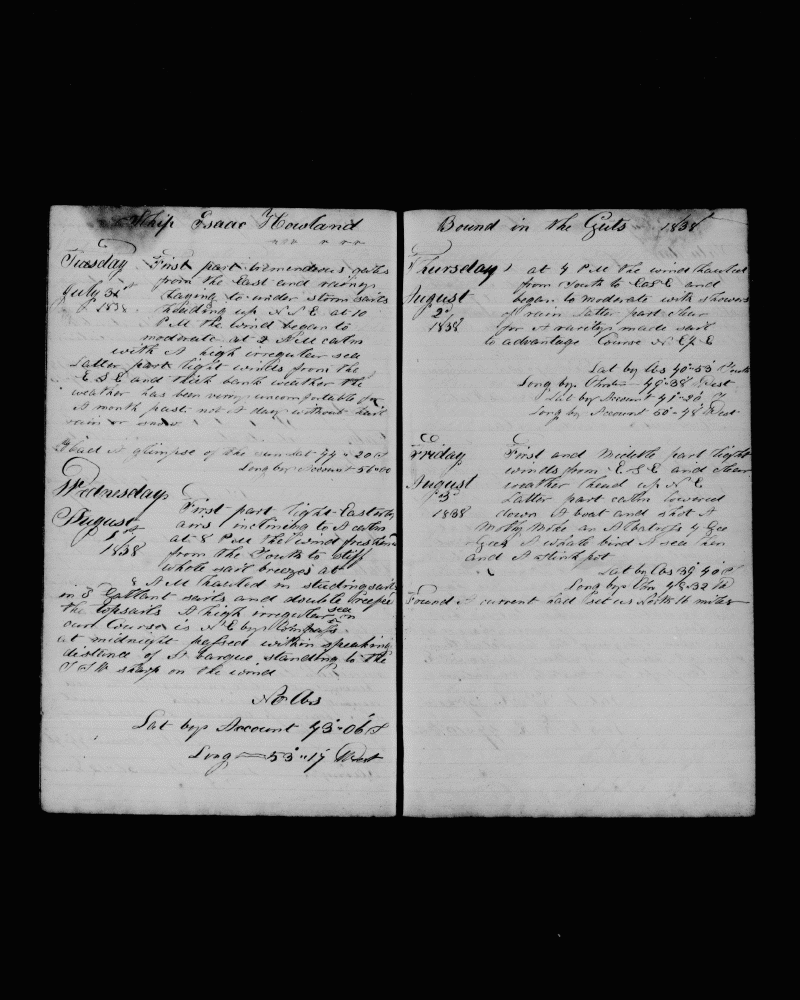 Ship Isaac Howland
Tuesday First part tremendous gales
July 31st from the East and raining
1838 laying to under storm sails
heading up N N E at 10
P M the wind began to
moderate at 2 A M calm
with A high irregular sea
Latter part light winds from the
E S E and thick dank weather the
weather has been very uncomfortable for
A month past not A day without hail
rain or snow
I had A glimpse of the sun Lat 44 - 20 S
Long by Account 56-00
Wednesday
First part light Easterly
August airs inclining to A calm
1st at 8 P M the wind freshened
1838 from the South to stiff
whole sail breezes at
4 A M hauled in studing sails
in Gallant sails and double reefed
the topsails A high irregular sea on
our Course is N E by Compass
at midnight passed within speaking
distance of A barque standing to the
sharp on the wind
No Obs
Lat by Account 43-06 S
Long 53-17 West
Bound in the Guts 1838
Thursday at 4 P M the wind hauled
from South to E S E and
August began to moderate with showers
2d of rain Latter part clear
1838 for A rarety made sail
to advantage Course N E
Lat by Obs 40-55 South
Long by Chro 49-38 West
Lat by Account 41-50
Long by Account 50-48 West
Friday First and Middle part light
winds from E S E and clear
August weather head up N E
3d Latter part calm lowered
1838 down A boat and shot A
Molly Moke an Albatross 4 Gee
Gees A whale bird A sea hen
and A stink pot
Lat by Obs 39 40 S
Long by Chr 48-32 W
Found A current had set us South 16 miles